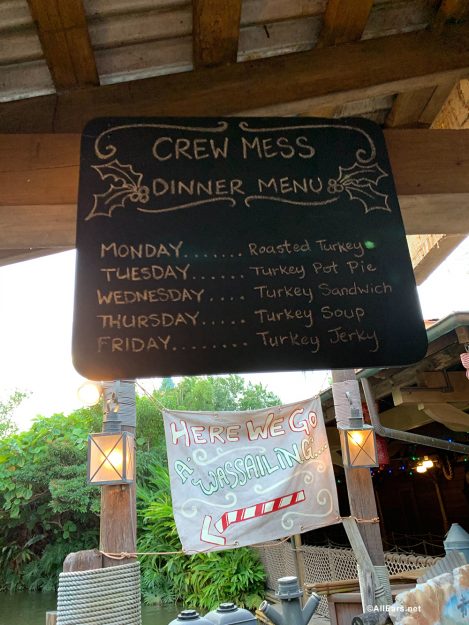 CREW MESS
DINNER MENU
MONDAY....... Roasted Turkey
TUESDAY....... Turkey Pot Pie
WEDNESDAY..... Turkey Sandwich
THURSDAY...... Turkey Soup
FRIDAY........ Turkey Jerky
HERE WE GO
A' WASSAILING...
©AllEars.net